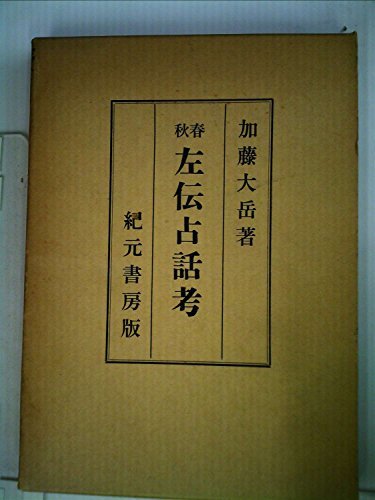 加藤大岳著
春秋
左伝占話考
紀元書房版